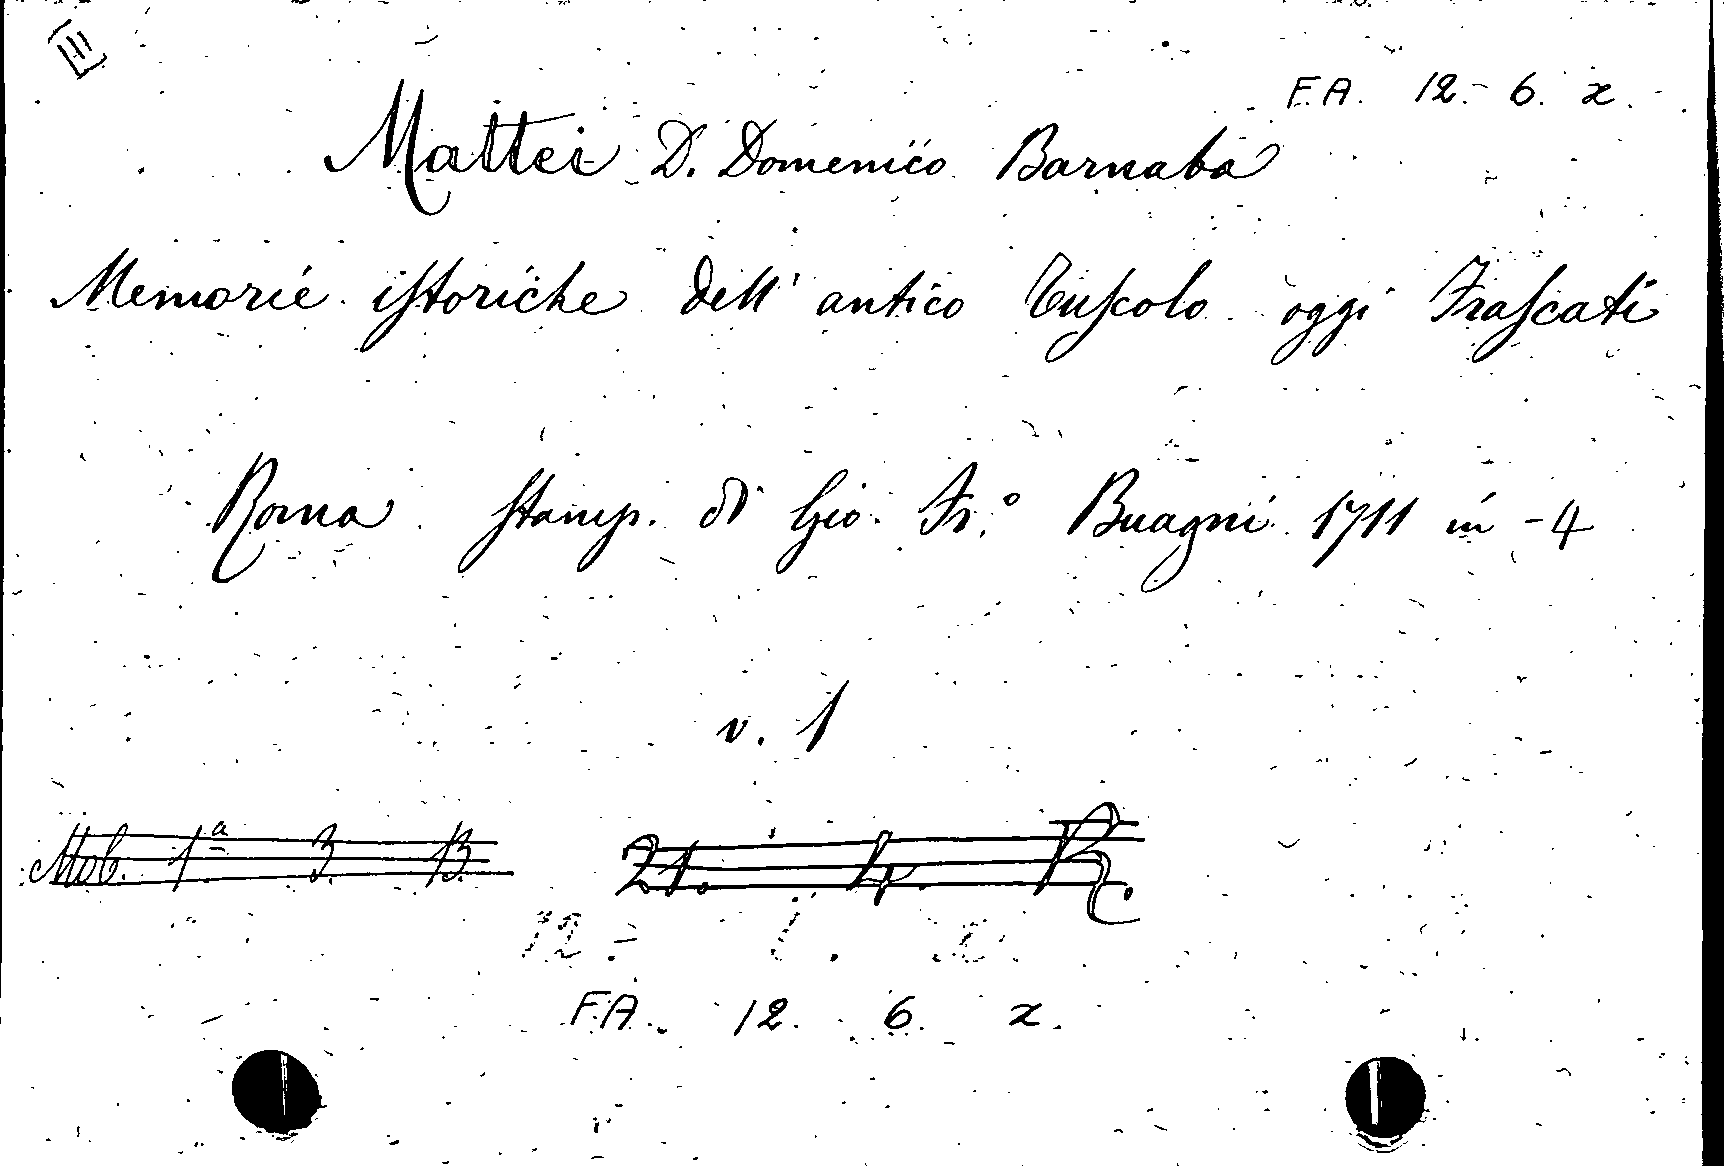 III
F.A. 12.- 6. z.
Mattei D. Domenico Barnaba
Memorie istoriche dell' antico Tuscolo oggi Frascati
Roma stamp. di Gio. Fr.º Buagni 1711 in - 4
v. 1
Mob. 1ª 3. B. 21. 4. R.
12.- i. x.
F.A. 12. 6. z.